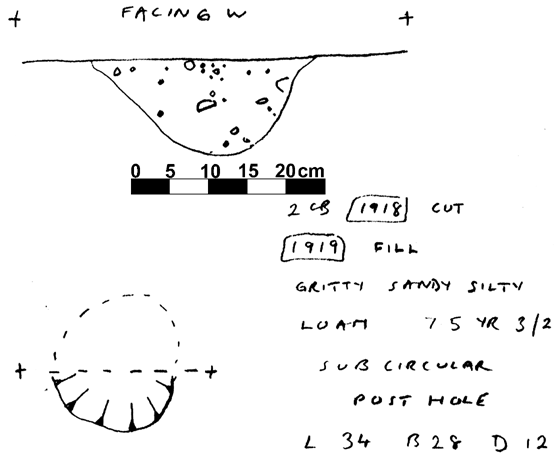 FACING W
0 5 10 15 20cm
2 CB 1918 CUT
1919 FILL
GRITTY SANDY SILTY
LOAM 7 5 YR 3/2
SUB CIRCULAR
POST HOLE
L 34 B 28 D 12